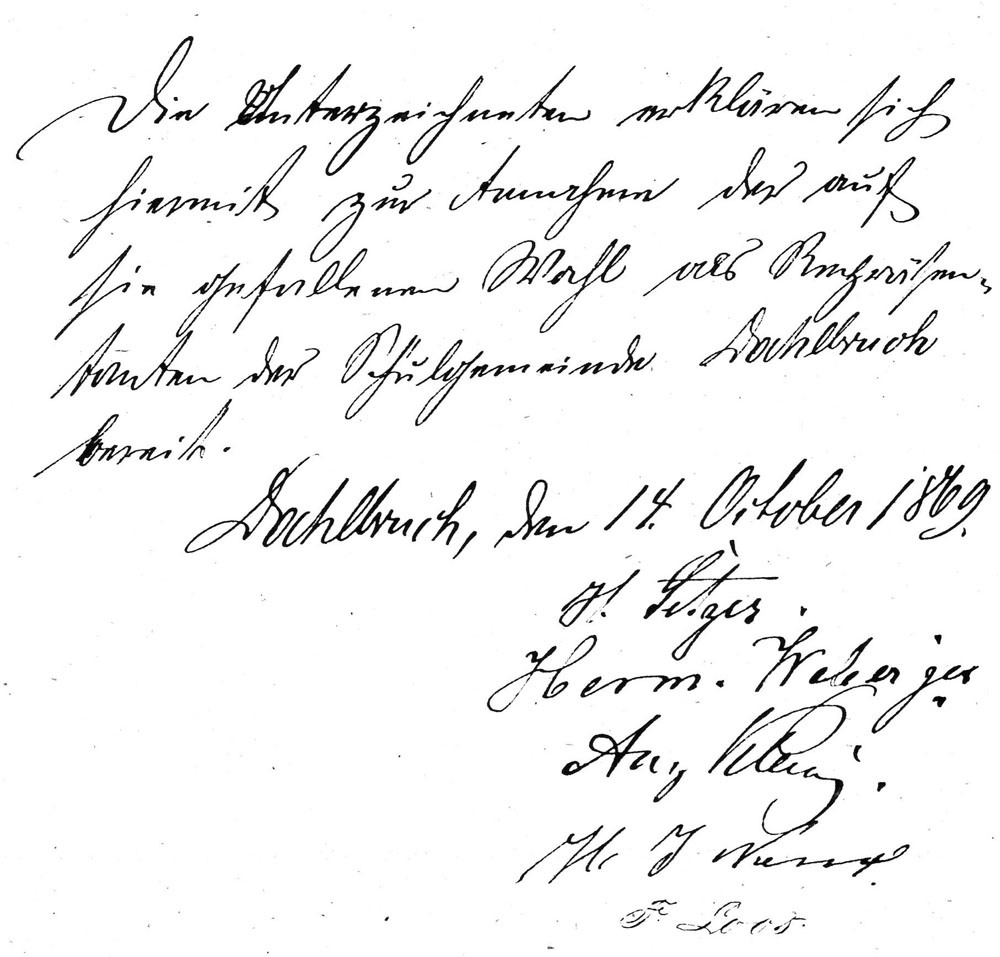 Die Unterzeichneten erklären sich
hiermit zur Annahme der auf
sie gefallenen Wahl als Repräsen-
tanten der Schulgemeinde Dahlbruch
bereit.
Dahlbruch, den 14. October 1869.
H.
Herm. Weber jr
Aug Klein.
H. J
Fr Loos.